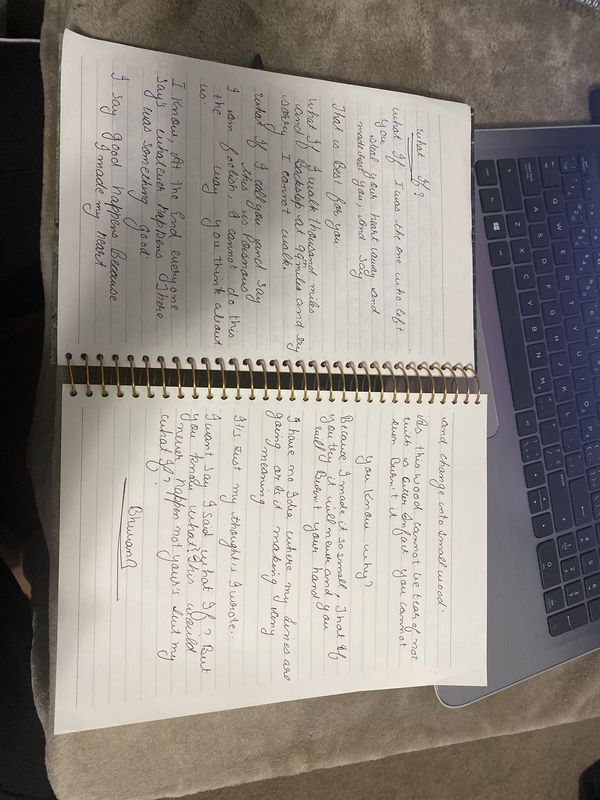 what If?
what If I was the one who left
you
steal your heart away and
made best you, and say
That is Best for you
What If I walk thousand miles
and I Backstep at 99th miles and say
sorry I cannot walk.
what If I call you and say
this is
I am foolish, I cannot do this
the way you think about
us.
I Know, At the End everyone
say's whatever happens there
was something good.
I say good happens Because
I made my heart
and change into small wood.
As this wood cannot be tear of not
with a even Infact you cannot
even Burn it
you know why?
Because I made it so small, That If
you try it will never and you
will Burnt your hand
I have no Idea where my lines are
going or Is it making any
meaning
It's Just my thoughts I wrote..
I want say I said what If? But
you know what? this would
never happen not your's but my
what If?
Bhuvana